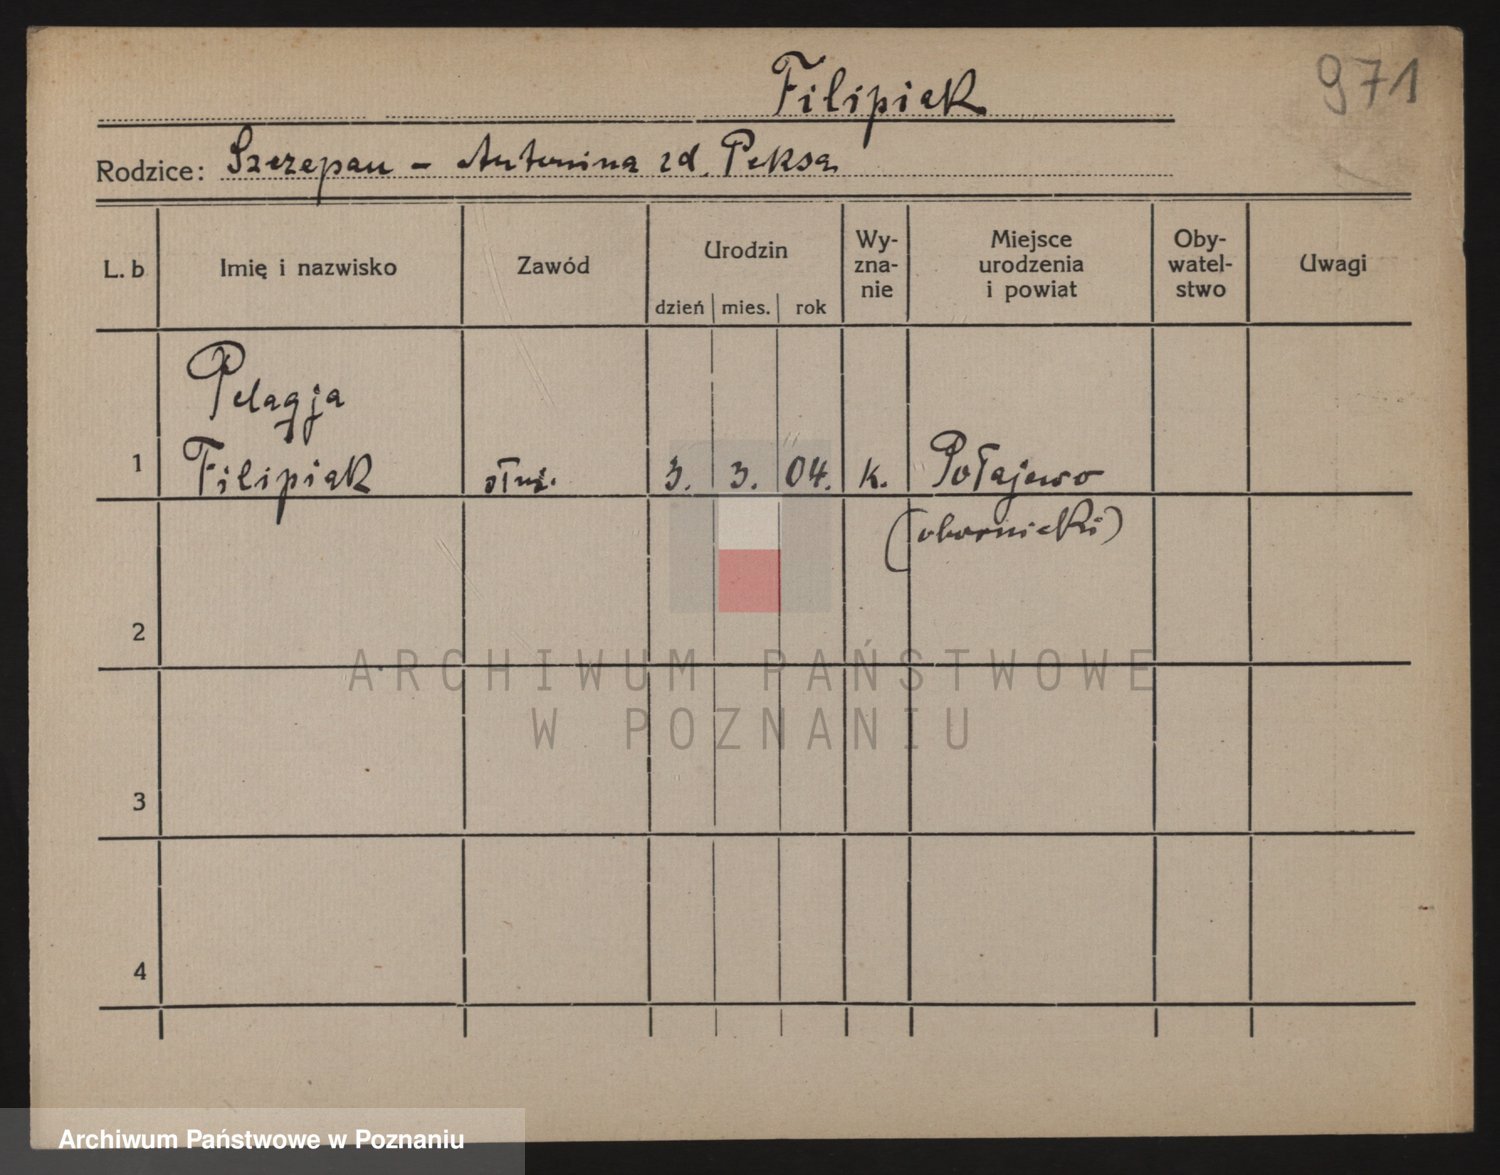 971
Filipiak
Rodzice: Szczepan - Antonina zd. Peksa
L. b
Imię i nazwisko
Zawód
Urodzin
dzień
mies.
rok
Wy-
zna-
nie
Miejsce
urodzenia
i powiat
Oby-
watel-
stwo
Uwagi
Pelagja
1 Filipiak służ. 3. 3. 04. k. Połajewo
(obornicki)
2
ARCHIWUM PAŃSTWOWE
W POZNANIU
3
4
Archiwum Państwowe w Poznaniu